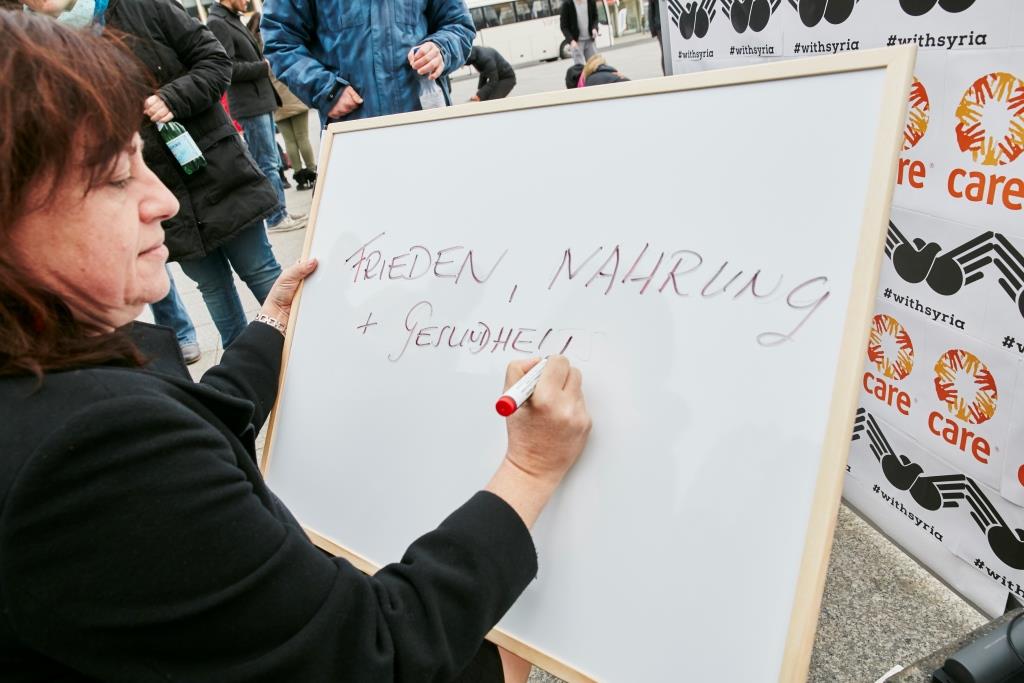 FRIEDEN, NAHRUNG
+ GESUNDHEIT
#withsyria
#withsyria
#withsyria
#withsyria
care
care
#withsyria
care
care
#withsyria